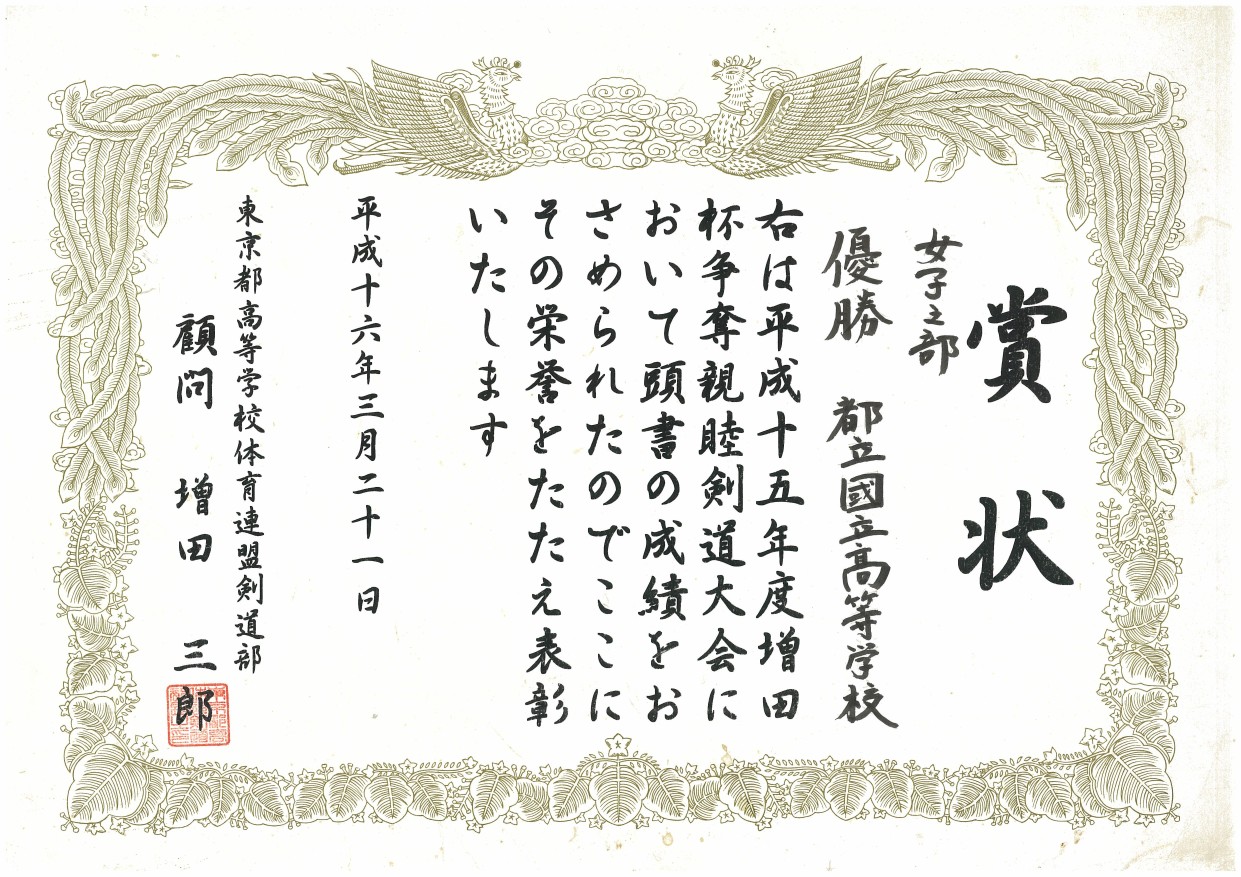 賞状
女子之部
優勝 都立國立高等学校
右は平成十五年度増田
杯争奪親睦剣道大会に
おいて頭書の成績をお
さめられたのでここに
その栄誉をたたえ表彰
いたします
平成十六年三月二十一日
東京都高等学校体育連盟剣道部
顧問 増田 三郎